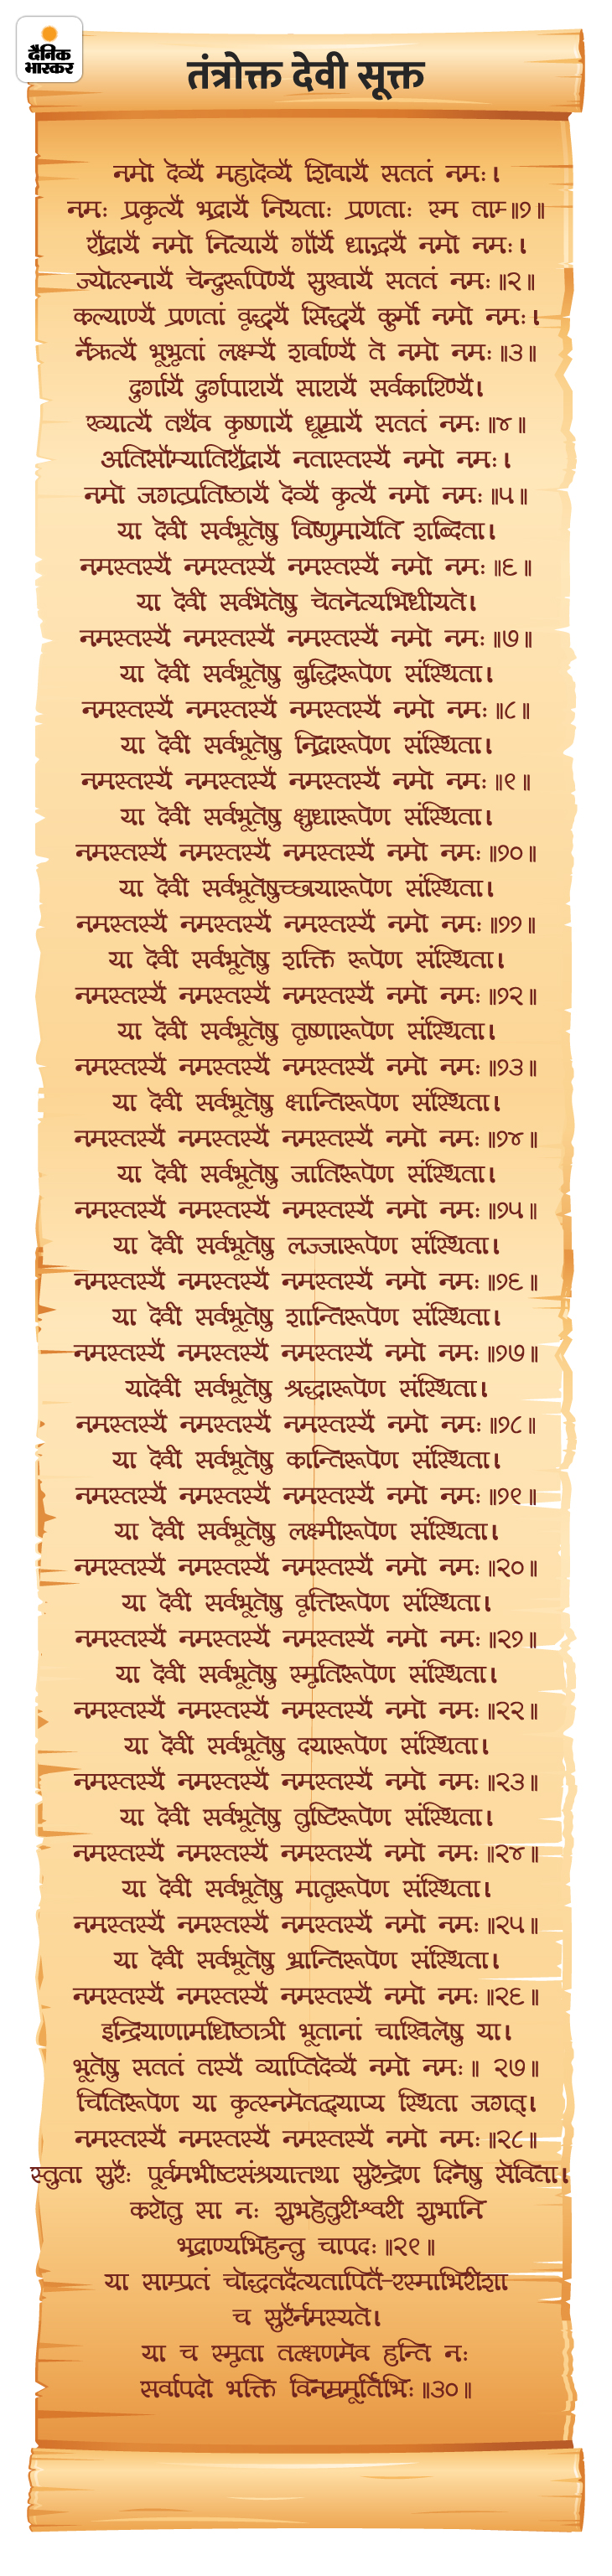 दैनिक
भास्कर
तंत्रोक्त देवी सूक्त
नमो देव्यै महादेव्यै शिवायै सततं नमः।
नमः प्रकृत्यै भद्रायै नियताः प्रणताः स्म ताम्॥१॥
रौद्रायै नमो नित्यायै गौर्यै धात्र्यै नमो नमः।
ज्योत्स्नायै चेन्दुरूपिण्यै सुखायै सततं नमः॥२॥
कल्याण्यै प्रणतां वृद्धयै सिद्धयै कुर्मो नमो नमः।
नैर्ऋत्यै भूभृतां लक्ष्म्यै शर्वाण्यै ते नमो नमः॥३॥
दुर्गायै दुर्गपारायै सारायै सर्वकारिण्यै।
ख्यात्यै तथैव कृष्णायै धूम्रायै सततं नमः॥४॥
अतिसौम्यातिरौद्रायै नतास्तस्यै नमो नमः।
नमो जगत्प्रतिष्ठायै देव्यै कृत्यै नमो नमः॥५॥
या देवी सर्वभूतेषु विष्णुमायेति शब्दिता।
नमस्तस्यै नमस्तस्यै नमस्तस्यै नमो नमः॥६॥
या देवी सर्वभेतेषु चेतनेत्यभिधीयते।
नमस्तस्यै नमस्तस्यै नमस्तस्यै नमो नमः॥७॥
या देवी सर्वभूतेषु बुद्धिरूपेण संस्थिता।
नमस्तस्यै नमस्तस्यै नमस्तस्यै नमो नमः॥८॥
या देवी सर्वभूतेषु निद्रारूपेण संस्थिता।
नमस्तस्यै नमस्तस्यै नमस्तस्यै नमो नमः॥९॥
या देवी सर्वभूतेषु क्षुधारूपेण संस्थिता।
नमस्तस्यै नमस्तस्यै नमस्तस्यै नमो नमः॥१०॥
या देवी सर्वभूतेषुच्छायारूपेण संस्थिता।
नमस्तस्यै नमस्तस्यै नमस्तस्यै नमो नमः॥११॥
या देवी सर्वभूतेषु शक्ति रूपेण संस्थिता।
नमस्तस्यै नमस्तस्यै नमस्तस्यै नमो नमः॥१२॥
या देवी सर्वभूतेषु तृष्णारूपेण संस्थिता।
नमस्तस्यै नमस्तस्यै नमस्तस्यै नमो नमः॥१३॥
या देवी सर्वभूतेषु क्षान्तिरूपेण संस्थिता।
नमस्तस्यै नमस्तस्यै नमस्तस्यै नमो नमः॥१४॥
या देवी सर्वभूतेषु जातिरूपेण संस्थिता।
नमस्तस्यै नमस्तस्यै नमस्तस्यै नमो नमः॥१५॥
या देवी सर्वभूतेषु लज्जारूपेण संस्थिता।
नमस्तस्यै नमस्तस्यै नमस्तस्यै नमो नमः॥१६॥
या देवी सर्वभूतेषु शान्तिरूपेण संस्थिता।
नमस्तस्यै नमस्तस्यै नमस्तस्यै नमो नमः॥१७॥
यादेवी सर्वभूतेषु श्रद्धारूपेण संस्थिता।
नमस्तस्यै नमस्तस्यै नमस्तस्यै नमो नमः॥१८॥
या देवी सर्वभूतेषु कान्तिरूपेण संस्थिता।
नमस्तस्यै नमस्तस्यै नमस्तस्यै नमो नमः॥१९॥
या देवी सर्वभूतेषु लक्ष्मीरूपेण संस्थिता।
नमस्तस्यै नमस्तस्यै नमस्तस्यै नमो नमः॥२०॥
या देवी सर्वभूतेषु वृत्तिरूपेण संस्थिता।
नमस्तस्यै नमस्तस्यै नमस्तस्यै नमो नमः॥२१॥
या देवी सर्वभूतेषु स्मृतिरूपेण संस्थिता।
नमस्तस्यै नमस्तस्यै नमस्तस्यै नमो नमः॥२२॥
या देवी सर्वभूतेषु दयारूपेण संस्थिता।
नमस्तस्यै नमस्तस्यै नमस्तस्यै नमो नमः॥२३॥
या देवी सर्वभूतेषु तुष्टिरूपेण संस्थिता।
नमस्तस्यै नमस्तस्यै नमस्तस्यै नमो नमः॥२४॥
या देवी सर्वभूतेषु मातृरूपेण संस्थिता।
नमस्तस्यै नमस्तस्यै नमस्तस्यै नमो नमः॥२५॥
या देवी सर्वभूतेषु भ्रान्तिरूपेण संस्थिता।
नमस्तस्यै नमस्तस्यै नमस्तस्यै नमो नमः॥२६॥
इन्द्रियाणामधिष्ठात्री भूतानां चाखिलेषु या।
भूतेषु सततं तस्यै व्याप्तिदेव्यै नमो नमः॥ २७॥
चितिरूपेण या कृत्स्नमेतद्व्याप्य स्थिता जगत्।
नमस्तस्यै नमस्तस्यै नमस्तस्यै नमो नमः॥२८॥
स्तुता सुरैः पूर्वमभीष्टसंश्रयात्तथा सुरेन्द्रेण दिनेषु सेविता।
करोतु सा नः शुभहेतुरीश्वरी शुभानि
भद्राण्यभिहन्तु चापदः॥२९॥
या साम्प्रतं चोद्धतदैत्यतापितै-रस्माभिरीशा
च सुरैर्नमस्यते।
या च स्मृता तत्क्षणमेव हन्ति नः
सर्वापदो भक्ति विनम्रमूर्तिभिः॥३०॥